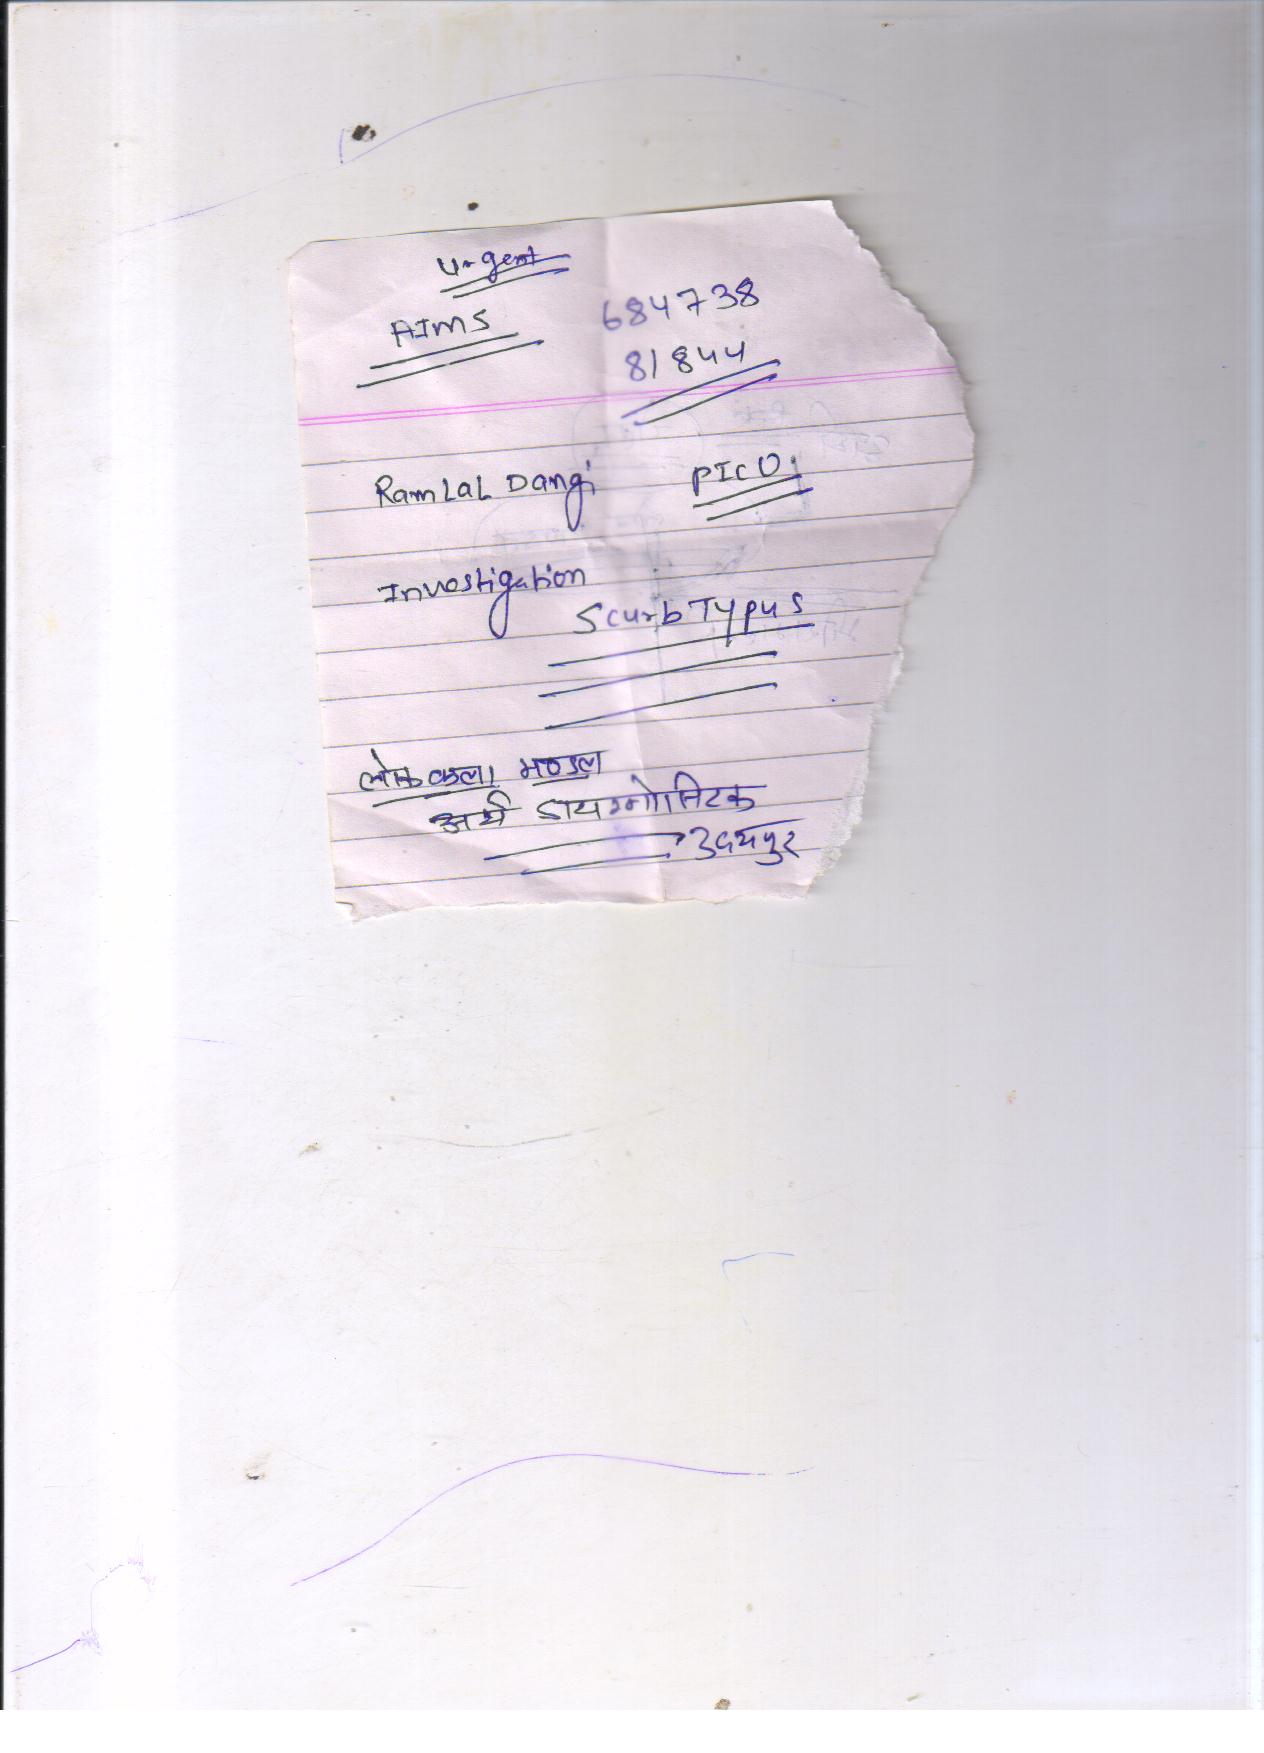 Urgent
AIMS 684738
81844
RamLaL Dangi PICU
Investigation
Scurb Typus
लोक कला मण्डल
अर्थ डायग्नोस्टिक
उदयपुर